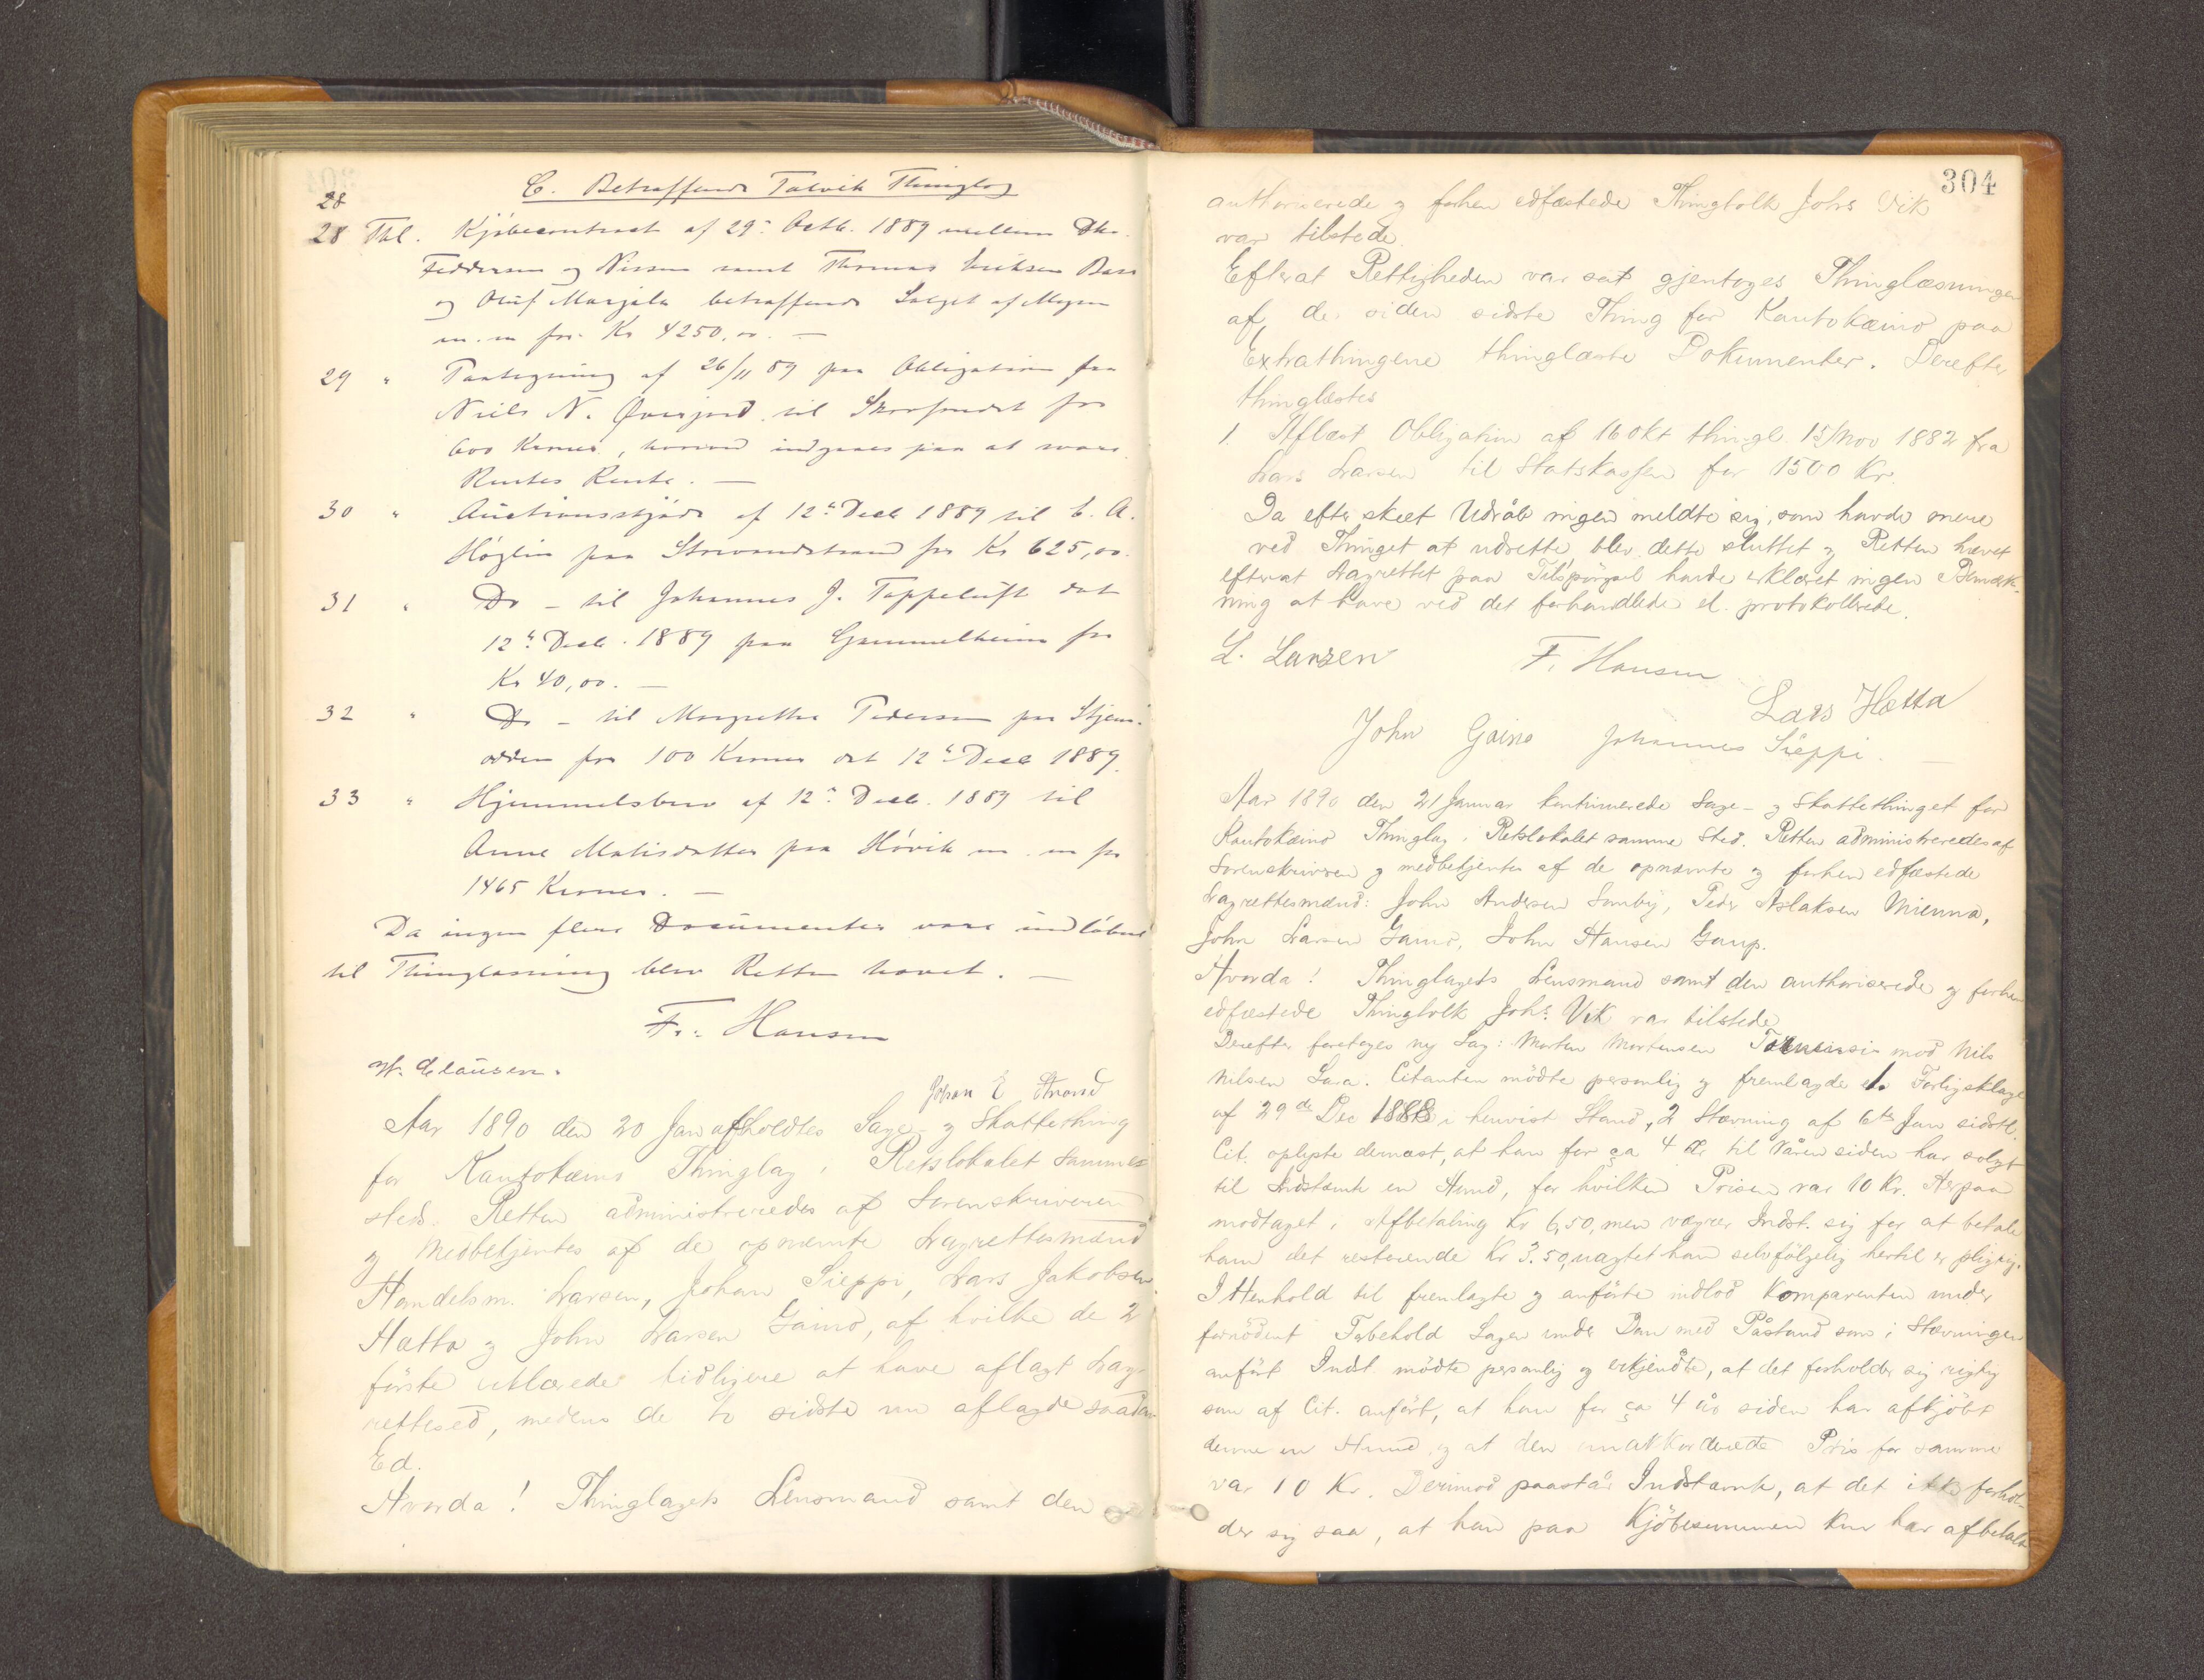 C. Betræffende Talvik Thinglag
28
28 Thl. Kjöbecontract af 29: Octb. 1889 mellem
Feddersen og Nissen samt Thomas Eriksen Bass
og Oluf Marjala betræffende Salget af
m. m for Kr 4250,00. —
29 " Paategning af 26/11 89 paa Obligation fra
Niels N. Överjord til Skovfondet for
600 Kroner, hvorved indgaaes paa at svare
Rentes Rente. —
30 " Auctionsskjöde af 12te Decb 1889 til C. A.
Höglin paa Storvandstrand for Kr 625,00.
31 " Do – til Johannes J. Toppeluft dat
12te Decb. 1889 paa Gammelheim for
Kr 40,00. —
32 " Do – til Margrethe Pedersen paa
odden for 100 Kroner dat 12te Decb 1889.
33 " Hjemmelsbrev af 12te Decb. 1889 til
Anne Matisdatter paa Hövik m. m for
1465 Kroner. —
Da ingen flere Documenter vare indlöbne
til Thinglæsning blev Retten hævet. —
Fr. Hansen
H. Clausen.
Johan E Strand
Aar 1890 den 20 Jan afholdtes Sage- og Skattething
for Kautokæino Thinglag i Retslokalet samme-
steds. Retten administreredes af Sorenskriveren
og medbetjentes af de opnævnte Lagrettesmænd
Handelsm. Larsen, Johan Sieppi, Lars Jakobsen
Hætta og John Larsen Gaino, af hvilke de 2
förste erklærede tidligere at have aflagt Lag-
rettesed, medens de to sidste nu aflagde saadan
Ed.
Hvorda! Thinglagets Lensmand samt den
304
authoriserede og forhen edfæstede Thingtolk Johs Vik
var tilstede.
Efterat Rettigheden var sat gjentoges Thinglæsningen
af de siden sidste Thing for Kautokæino paa
Extrathingene thinglæste Dokumenter. Derefter
thinglæstes
1. Aflæst Obligation af 16 Okt thingl. 15/Nov 1882 fra
Lars Larsen til Statskassen for 1500 Kr.
Da efter skeet Udråb ingen meldte sig, som havde mere
ved Thinget at udrette blev dette sluttet og Retten hævet
efterat Lagrettet paa Tilspörgsel havde erklæret ingen Bemærk-
ning at have ved det forhandlede el. protokollerede.
L. Larsen F. Hansen
Lars Hætta
John Gaino Johannes Sieppi.
Aar 1890 den 21 Januar kontinuerede Sage- og Skattethinget for
Kautokæino Thinglag i Retslokalet samme Sted. Retten administreredes af
Sorenskriveren og medbetjentes af de opnævnte og forhen edfæstede
Lagrettesmænd: John Andersen Somby, Peder Aslaksen Mienna,
John Larsen Gaino, John Hansen Gaup.
Hvorda! Thinglagets Lensmand samt den authoriserede og forhen
edfæstede Thingtolk Johs. Vik var tilstede
Derefter foretoges ny Sag: Morten Mortensen mod Nils
Nilsen Sara. Citanten mödte personlig og fremlagde 1. Forligsklage
af 29de Dec 1888 i henvist Stand, 2 Stævning af 6te Jan sidstl.
Cit. oplyste dernæst, at han for ca 4 År til Våren siden har solgt
til Indstævnte en Hund, for hvilken Prisen var 10 Kr. Herpaa
modtaget i Afbetaling Kr 6,50, men vægrer Indst. sig for at betale
ham det resterende Kr 3.50, uagtet han selvfölgelig hertil er pligtig.
I Henhold til fremlagte og anförte indlod Komparenten under
fornödent Forbehold Sagen under Dom med Påstand som i Stævningen
anfört Indst. mödte personlig og erkjendte, at det forholder sig rigtig
som af Cit. anfört, at han for ca 4 år siden har afkjöbt
denne en Hund og at den omakkorderede Pris for samme
var 10 Kr. Derimod paastår Indstævnte, at det ikke forhol-
der sig saa, at han paa Kjöbesummen kun har afbetalt